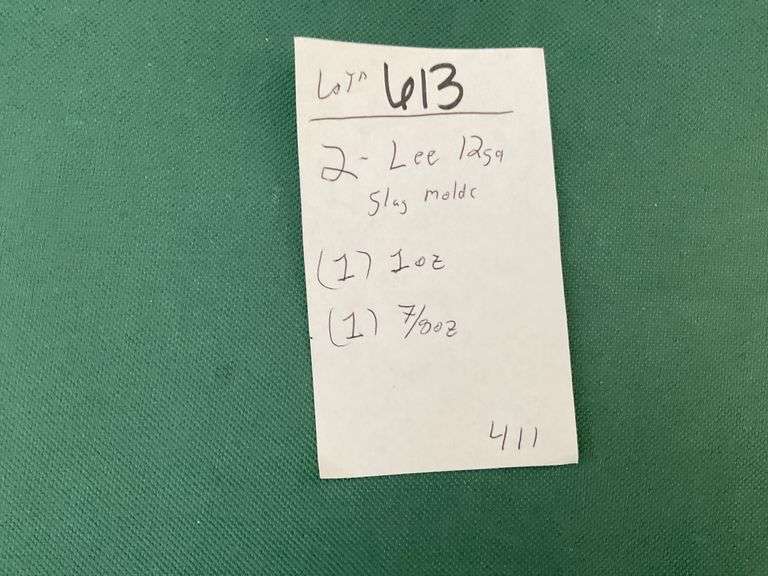 Lot# 613
2- Lee 12ga
Slug molds
(1) 1oz
(1) 7/8oz
411